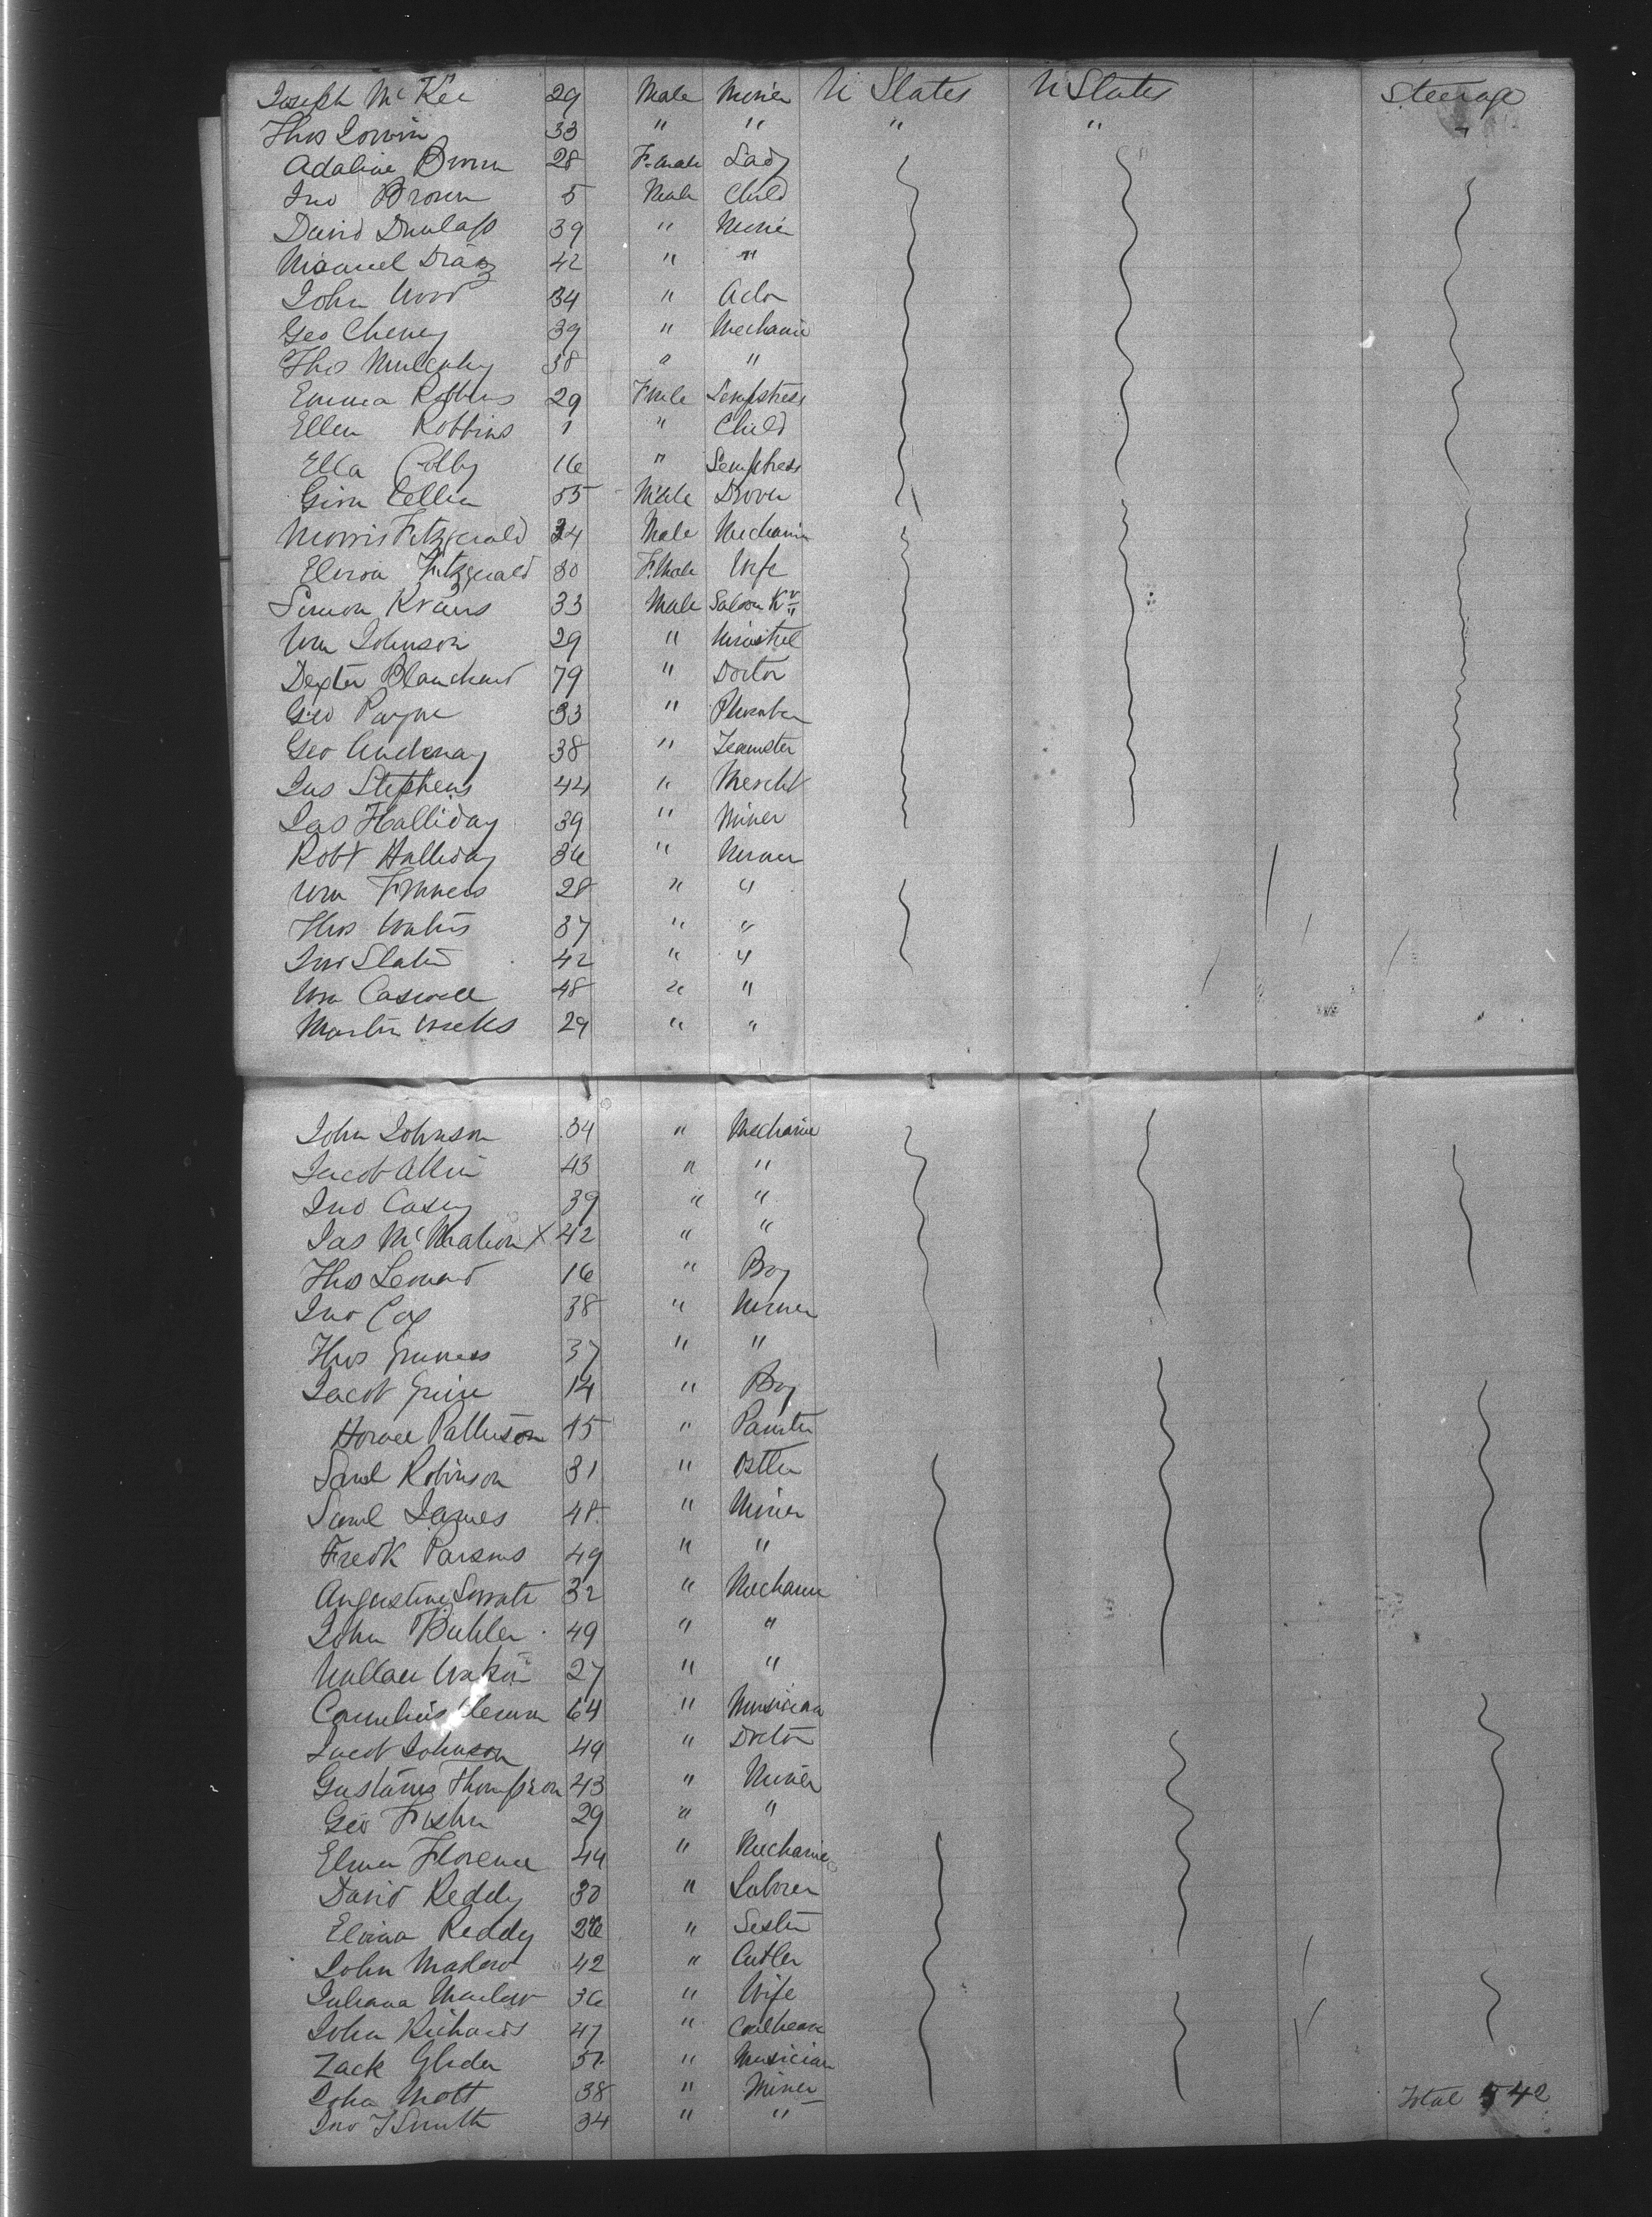 Joseph McKee 29 Male Miner U States U States Steerage
Thos Irwin 33 " " " " "
Adaline Brown 28 F.male Lady
Jno Brown 5 Male Child
David Dunlap 39 " Miner
Manuel Diaz 42 " "
John Wood 34 " Actor
Geo Cheney 39 " Mechanic
Thos Mulcahy 38 " "
Emma Robbins 29 Fmle Sempstress
Ellen Robbins 1 " Child
Ella Colby 16 " Sempstress
55 Male Drover
Morris Fitzgerald 34 Male Mechanic
Fitzgerald 30 F.male Wife
Simon Kraus 33 Male Saloon Kr
Wm Johnson 29 " Minstrel
Dexter Blanchard 79 " Doctor
Geo Payne 33 " Plumber
Geo 38 " Teamster
Jas Stephens 44 " Mercht
Jas Halliday 39 " Miner
Robt Halliday 36 " Miner
Wm 28 " "
Thos 37 " "
Jno Slater 42 " "
Wm Caswell 48 " "
Martin Weeks 29 " "
John Johnson 34 " Mechanic
Jacob 43 " "
Jno Casey 39 " "
Jas McMahon X 42 " "
Thos Leonard 16 " Boy
Jno Cox 38 " Miner
Thos 37 " "
Jacob 14 " Boy
Horace Patterson 45 " Painter
Saml Robinson 31 " Ostler
Saml James 48 " Miner
Fredk Parsons 49 " "
Augustine 32 " Mechanic
John Buhler 49 " "
Wallace 27 " "
Cornelius 64 " Musician
Jacob Johnson 49 " Doctor
Gustavus Thompson 43 " Miner
Geo Fisher 29 " "
Elmer Florence 44 " Mechanic
David Reddy 30 " Laborer
Reddy 26 " Sister
John Marlow 42 " Cutler
Juliana Marlow 36 " Wife
John Richards 47 "
Zack Glider " Musician
John Mott 38 " Miner Total 542
Jno F Smith 34 " "